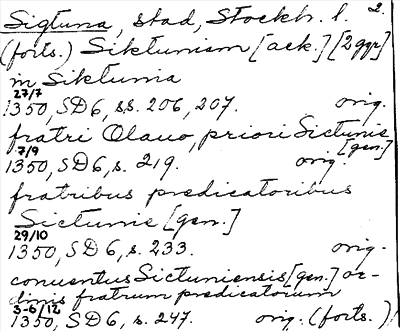 Sigtuna, stad, Stockh. l. 2.
(forts.) Siktunism [ack.] [2 ggr]
in Siktunia
27/7
1350, SD 6, ss. 206, 207. orig.
fratri Olauo, priori Sictunie [gen.]
7/9
1350, SD 6, s. 219. orig.
fratribus predicatoribus
Sictunie [gen.]
29/10
1350, SD 6, s. 233. orig.
conuentus Sictuniensis [gen.] or-
dinis fratrum predicatorum
3-6/12
1350, SD 6, s. 247. orig. (forts.)